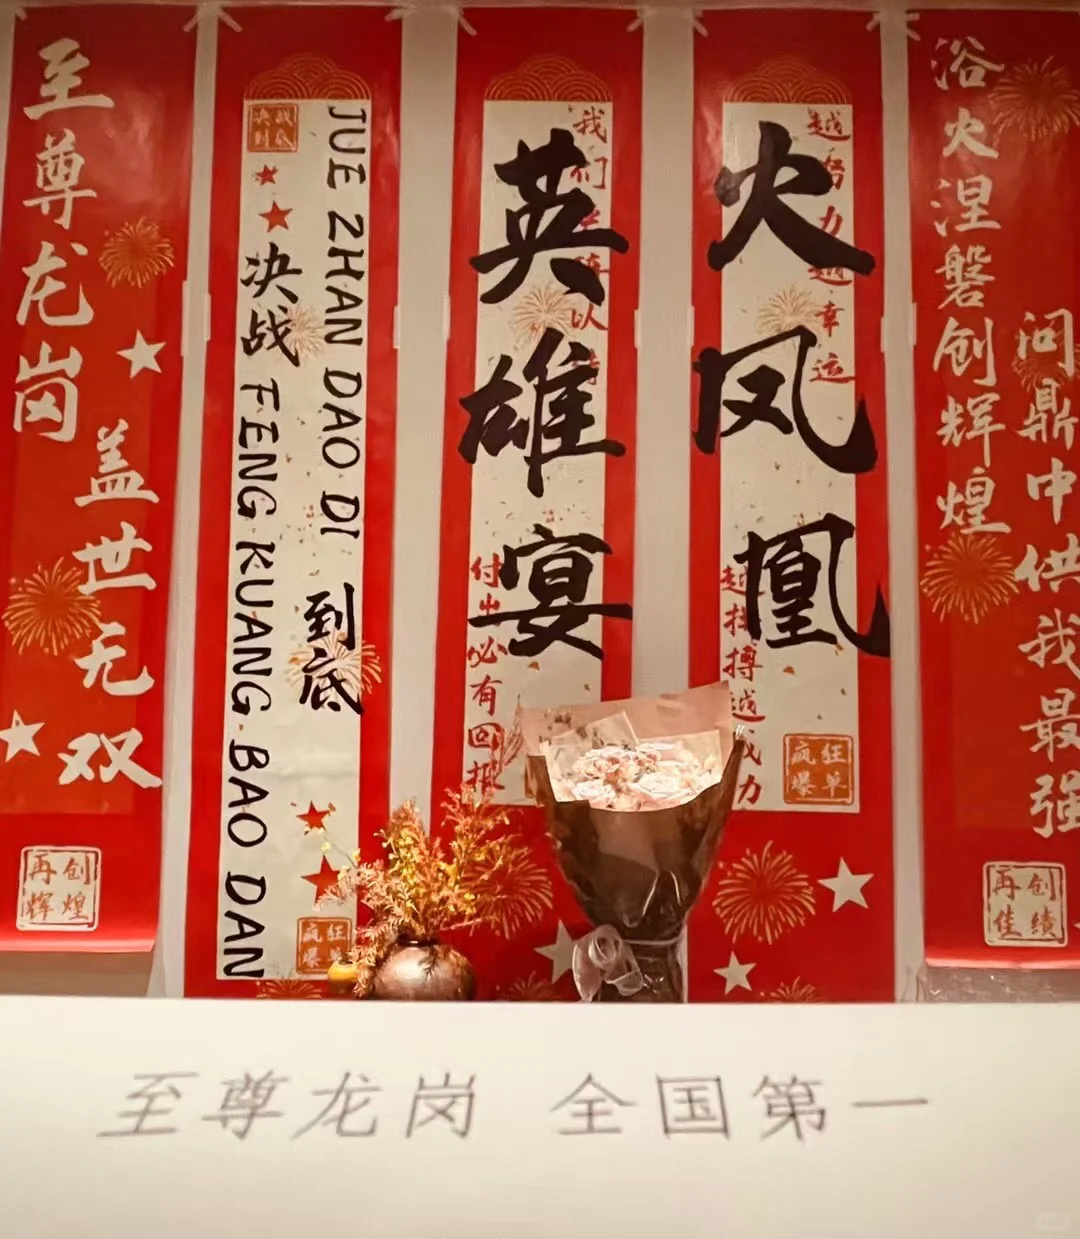 至尊龙岗
盖世无双
再创
辉煌
JUE ZHAN DAO DI
到底
决战 FENG KUANG BAO DAN
疯狂
爆单
我们
英雄宴
付出必有回报
越努力越幸运
火凤凰
疯狂
爆单
浴火涅磐创辉煌
问鼎中供我最强
再创
佳绩
至尊龙岗 全国第一